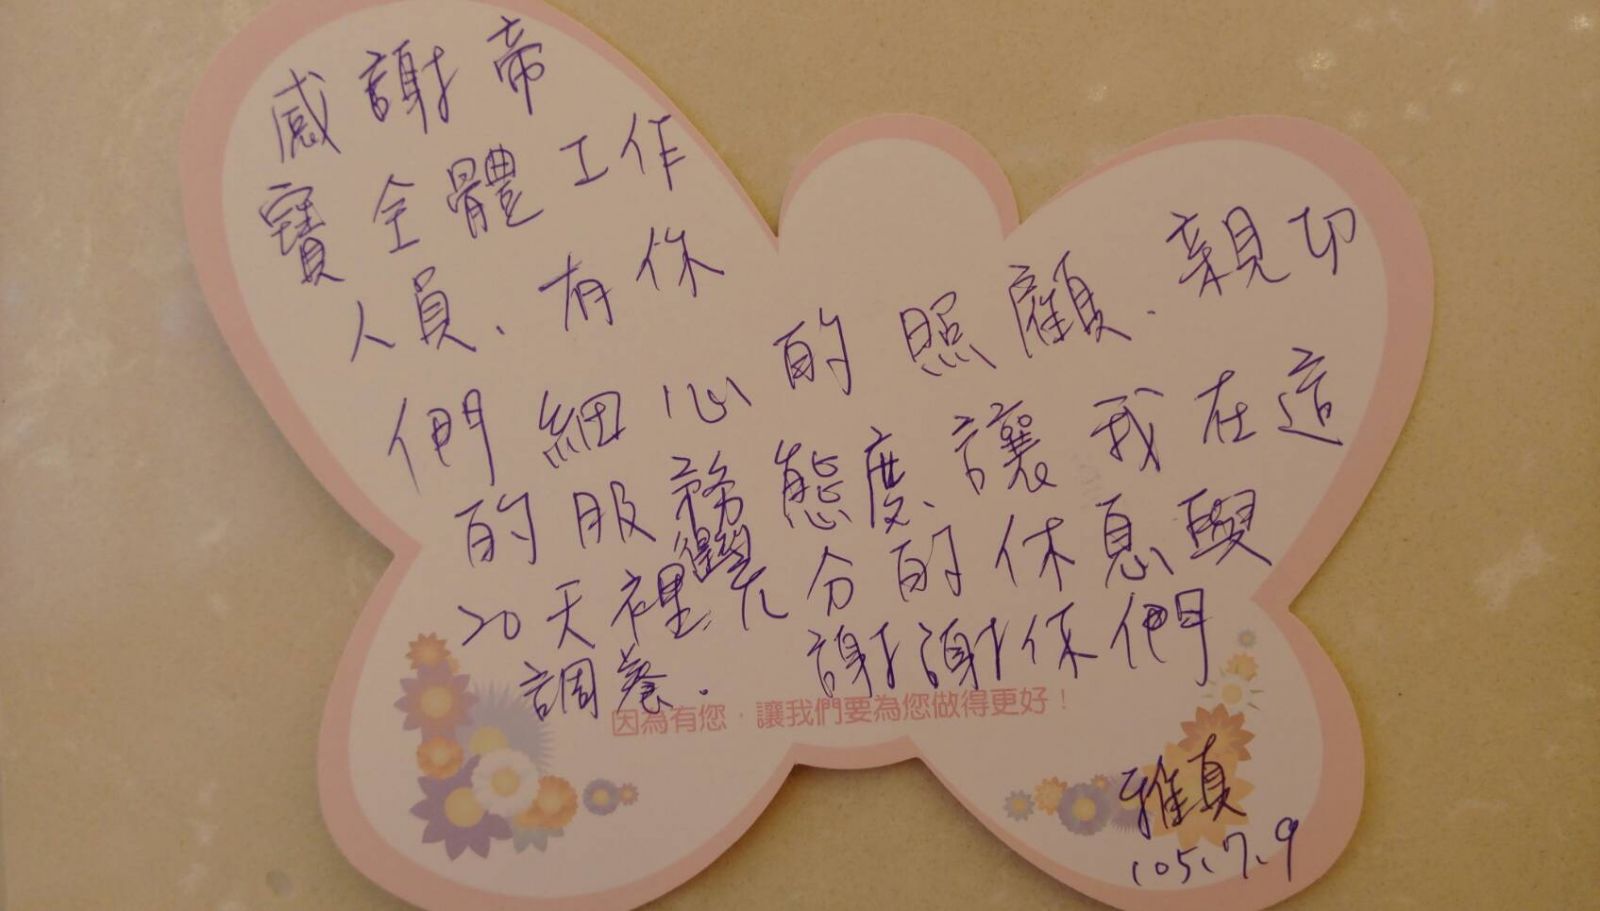 感謝帝
寶全體工作
人員、有你
們細心的照顧、親切
的服務態度、讓我在這
20天裡、得到充分的休息與
調養. 謝謝你們
因為有您，讓我們要為您做得更好！
雅真
105.7.9